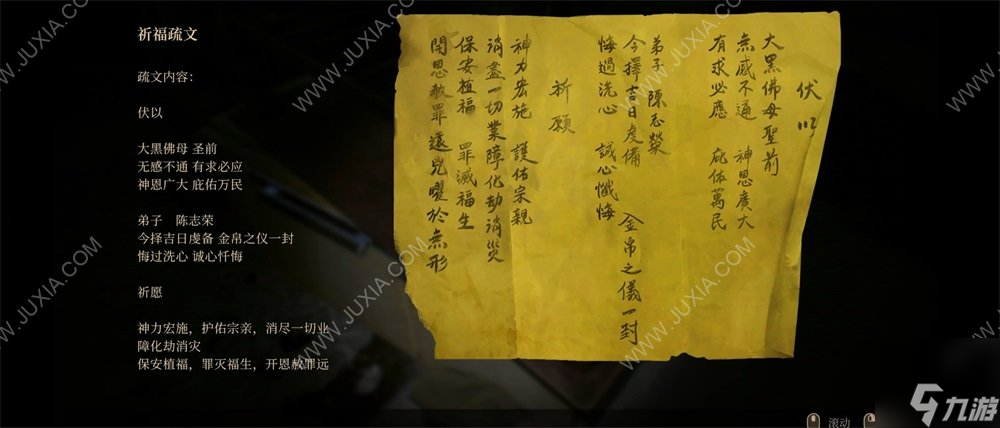 祈福疏文
疏文内容：
伏以
大黑佛母 圣前
无感不通 有求必应
神恩广大 庇佑万民
弟子　陈志荣
今择吉日虔备 金帛之仪一封
悔过洗心 诚心忏悔
祈愿
神力宏施，护佑宗亲，消尽一切业
障化劫消灾
保安植福，罪灭福生，开恩赦罪远
伏以
大黑佛母聖前
無感不通　神恩廣大
有求必應　庇佑萬民
弟子 陳志榮
今擇吉日虔備　金帛之儀一封
悔過洗心　誠心懺悔
祈願
神力宏施　護佑宗親
消盡一切業障化劫消災
保安植福　罪滅福生
開恩赦罪遠兇曜於無形
滚动
九游
WWW.JUXIA.COM
WWW.JUXIA.COM
WWW.JUXIA.COM
WWW.JUXIA.COM
WWW.JUXIA.COM
WWW.JUXIA.COM